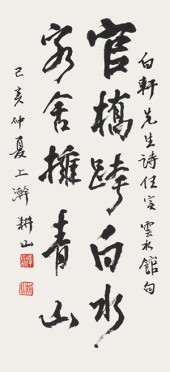 白軒先生詩任定雲水館句
官橋跨白水
客舍擁青山
己亥仲夏上澣 耕山